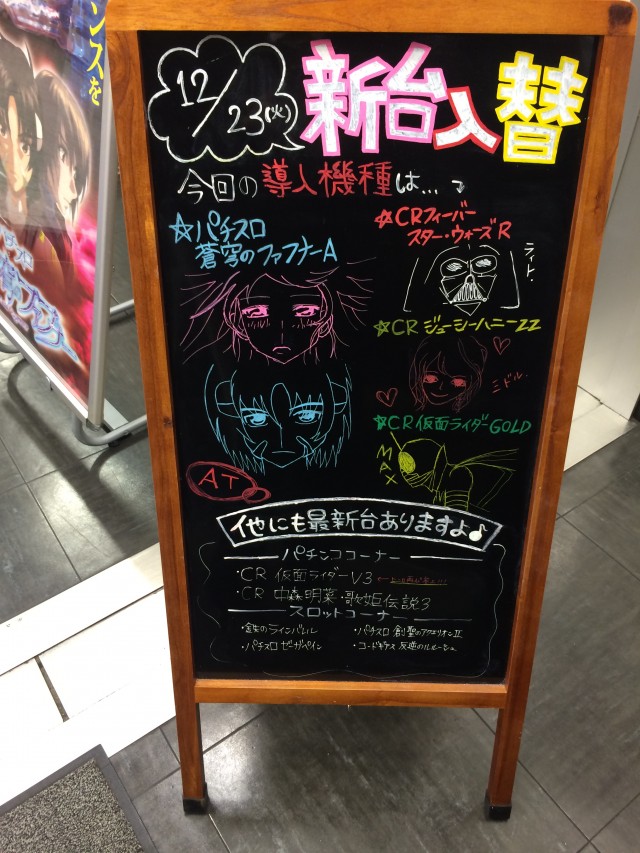 ンスを
12/23(火)
新台入替
今回の導入機種は…
☆パチスロ
蒼穹のファフナーA
AT
☆CRフィーバー
スター・ウォーズR
ライト.
☆CRジューシーハニーZZ
ミドル.
☆CR仮面ライダーGOLD
MAX
他にも最新台ありますよ♪
パチンココーナー
・CR 仮面ライダーV3
・CR 中森明菜・歌姫伝説3
スロットコーナー
・鉄のラインバレル
・パチスロ 創聖のアクエリオンII
・パチスロ ゼーガペイン
・コードギアス 反逆のルルーシュ